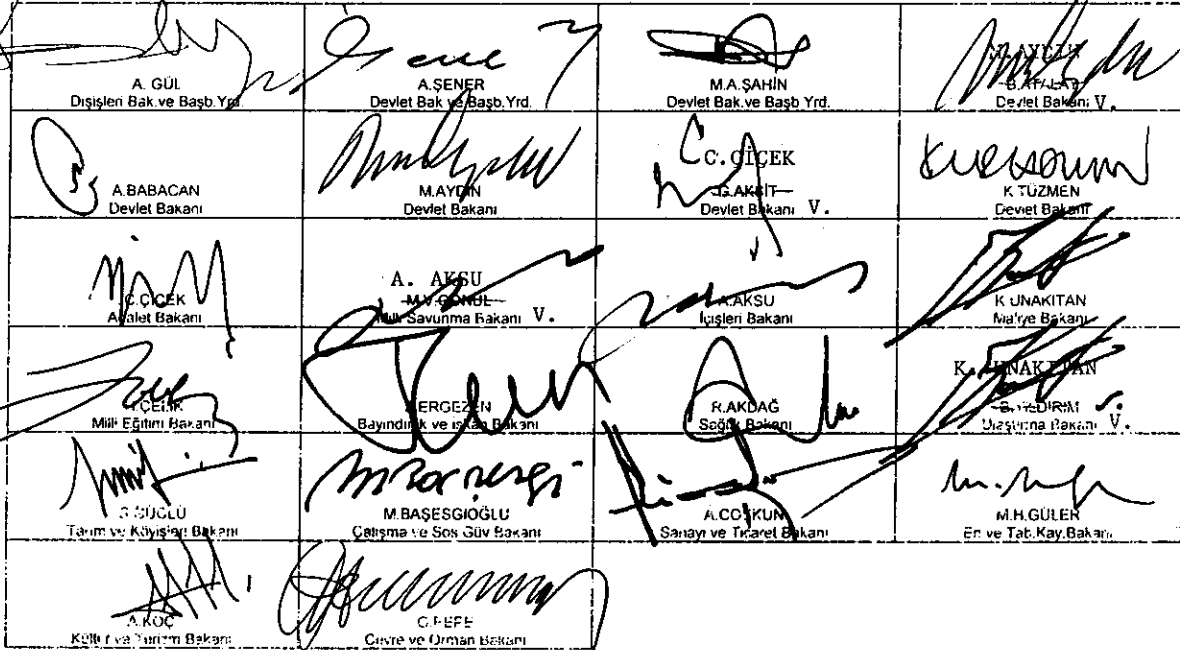 A. GÜL
Dışişleri Bak.ve Başb.Yrd.
A.ŞENER
Devlet Bak.ve Başb.Yrd.
M.A.ŞAHİN
Devlet Bak.ve Başb Yrd.
M. AYDIN
B.ATALAY
Devlet Bakanı V.
A.BABACAN
Devlet Bakanı
M.AYDIN
Devlet Bakanı
C.ÇİÇEK
G.AKŞİT
Devlet Bakanı V.
K TÜZMEN
Devlet Bakanı
C.ÇİÇEK
Adalet Bakanı
A. AKSU
M.V.GÖNÜL
Milli Savunma Bakanı V.
A.AKSU
İçişleri Bakanı
K UNAKITAN
Maliye Bakanı
H.ÇELİK
Milli Eğitim Bakanı
Z.ERGEZEN
Bayındırlık ve İskan Bakanı
R.AKDAĞ
Sağlık Bakanı
K. UNAKITAN
B.YILDIRIM
Ulaştırma Bakanı V.
S.GÜÇLÜ
Tarım ve Köyişleri Bakanı
M.BAŞESGİOĞLU
Çalışma ve Sos Güv Bakanı
A.COŞKUN
Sanayi ve Ticaret Bakanı
M.H.GÜLER
En ve Tab.Kay.Bakanı
A.KOÇ
Kültür ve Turizm Bakanı
O.PEPE
Çevre ve Orman Bakanı